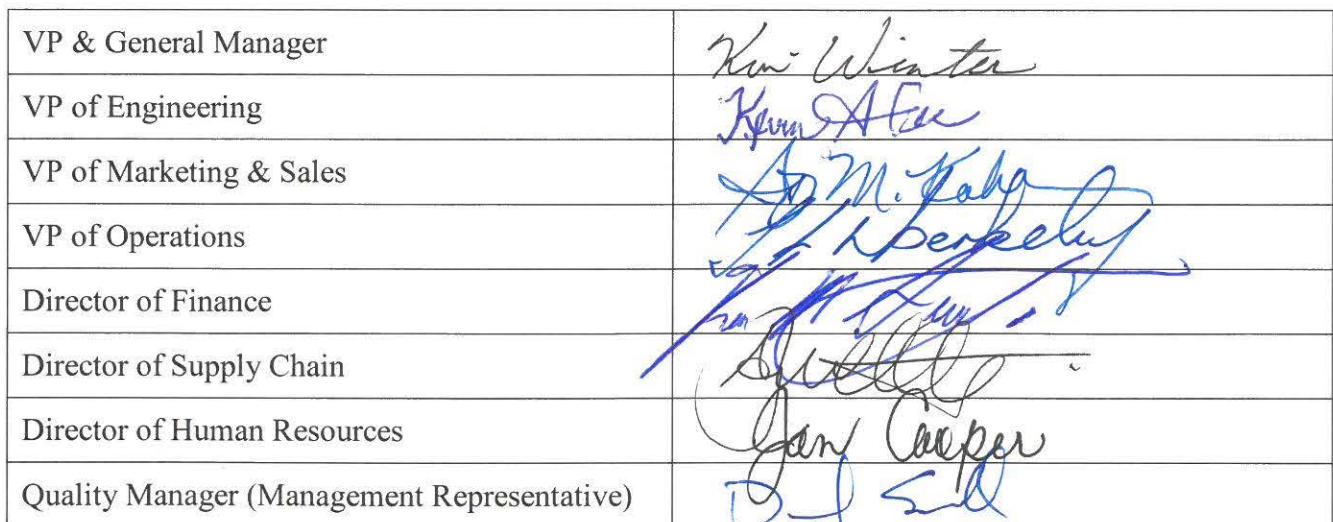 VP & General Manager Kim Winter
VP of Engineering Kevin A
VP of Marketing & Sales M.
VP of Operations Berkeley
Director of Finance
Director of Supply Chain
Director of Human Resources Jan Cooper
Quality Manager (Management Representative)